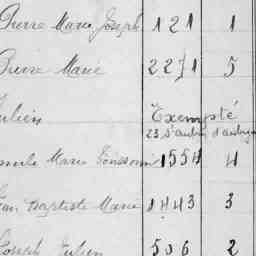 Pierre Marie Joseph 121 1
Pierre Marie 2271 5
Julien Exempté
23 St Aubin d'aubigné
Marie Toussaint 1554 4
Jean Baptiste Marie 1443 3
Joseph Julien 506 2